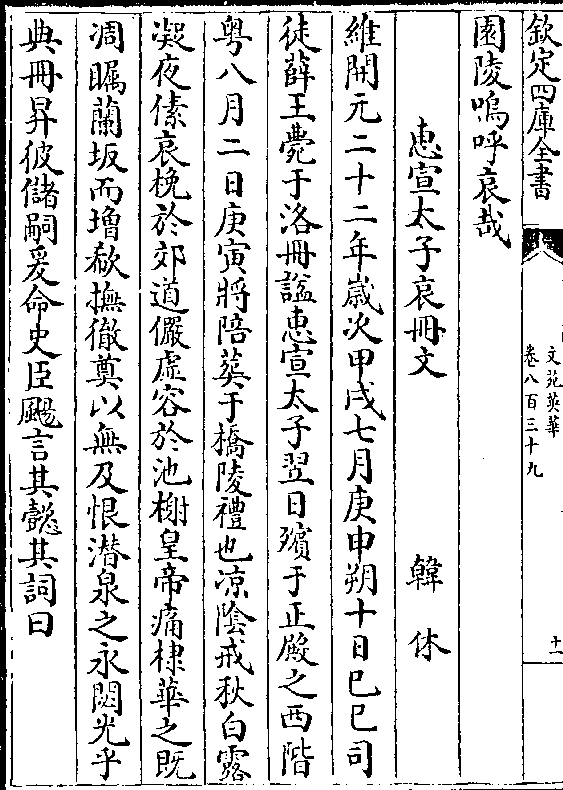 欽定四庫全書
文苑英華
卷八百三十九
十一
園陵嗚呼哀哉
惠宣太子哀冊文 韓休
維開元二十二年歲次甲戌七月庚申朔十日己巳司
徒薛王薨于洛冊諡惠宣太子翌日殯于正殿之西階
粤八月二日庚寅將陪葬于橋陵禮也凉陰戒秋白露
凝夜傃哀挽於郊道儼虚容於池榭皇帝痛棣華之既
凋矚蘭坂而增欷撫徹奠以無及恨潜泉之永閟光乎
典冊昇彼儲嗣爰命史臣颺言其懿其詞曰